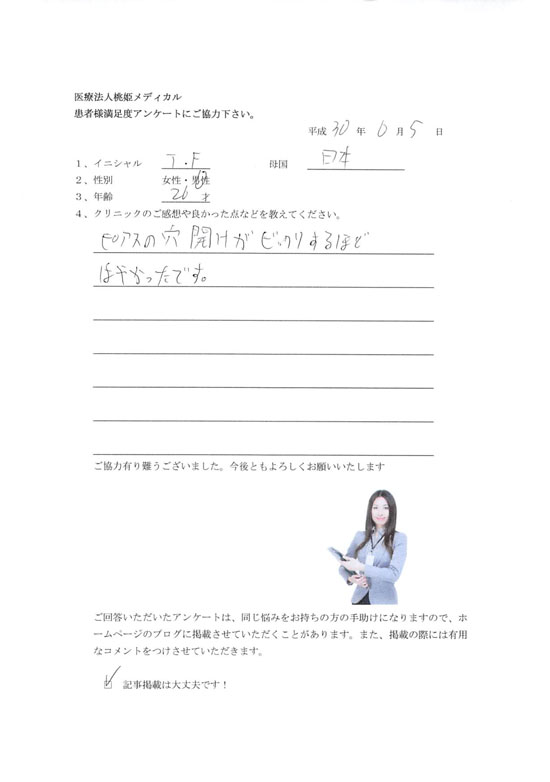 医療法人桃姫メディカル
患者様満足度アンケートにご協力下さい。
平成 30 年 6 月 5 日
1、イニシャル T.F 母国 日本
2、性別 女性・男性
3、年齢 26 才
4、クリニックのご感想や良かった点などを教えてください。
ピアスの穴開けがビックリするほど
はやかったです。
ご協力有り難うございました。今後ともよろしくお願いいたします
ご回答いただいたアンケートは、同じ悩みをお持ちの方の手助けになりますので、ホ
ームページのブログに掲載させていただくことがあります。また、掲載の際には有用
なコメントをつけさせていただきます。
☑ 記事掲載は大丈夫です！